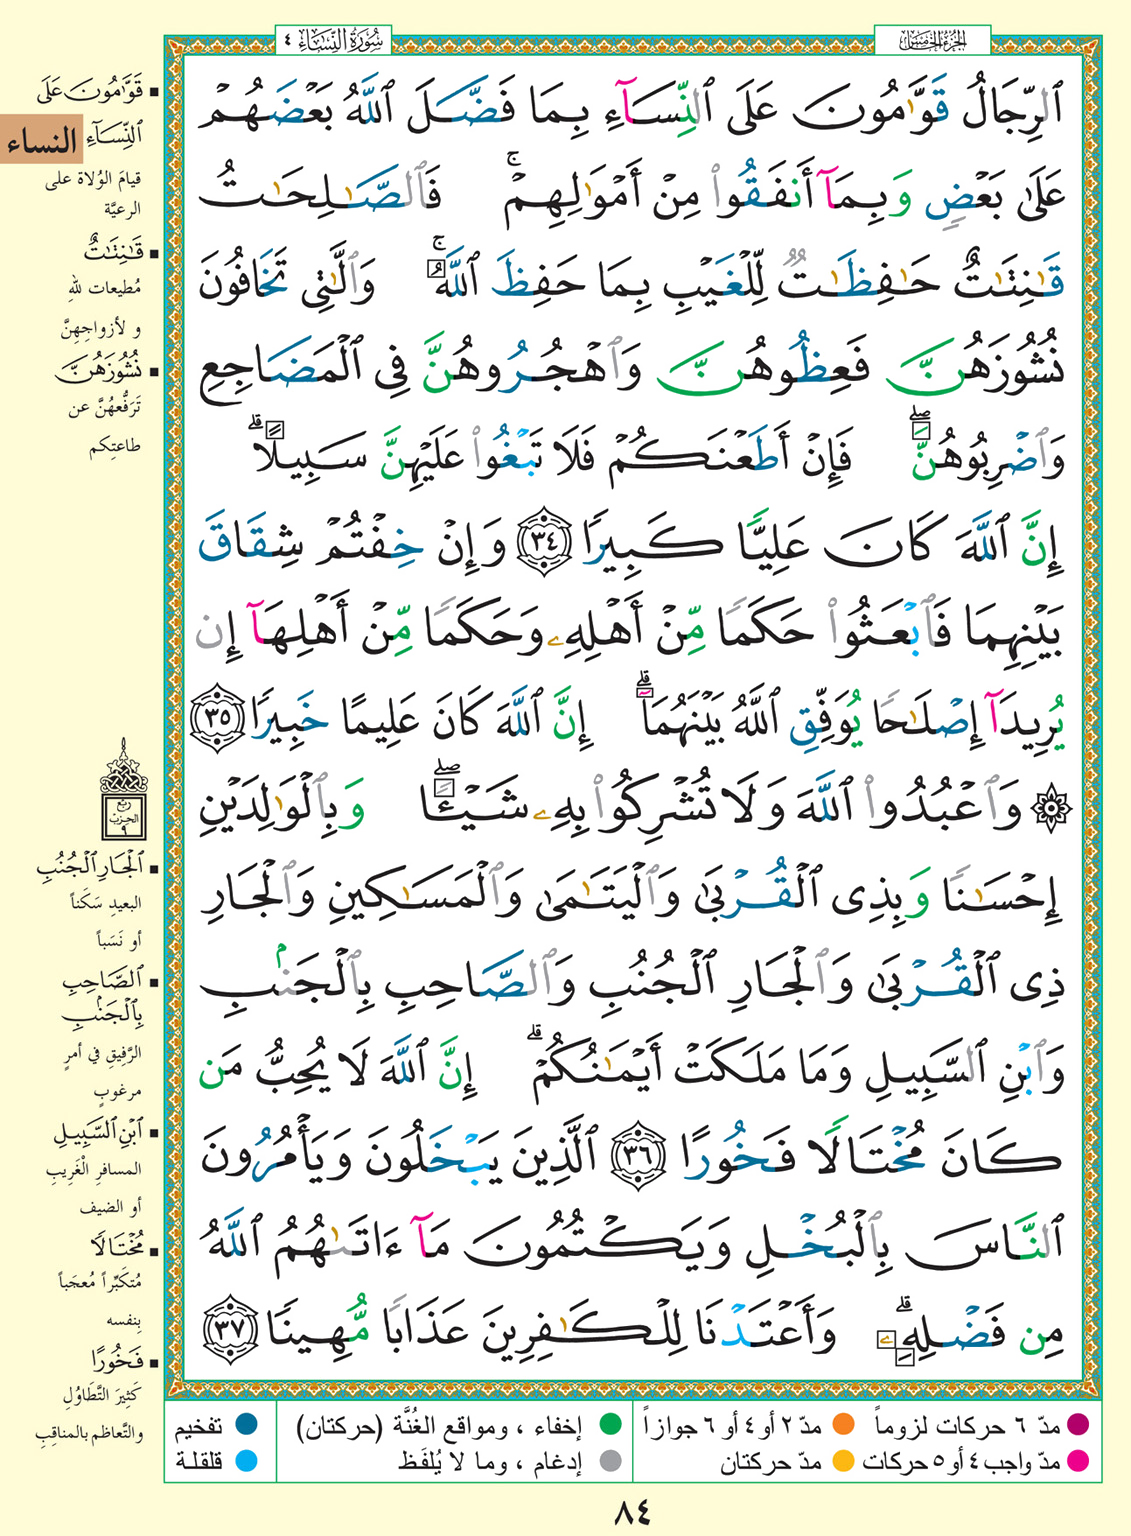 سُورَةُ النِّسَاءِ ٤
الجزء الخامس
ٱلرِّجَالُ قَوَّٰمُونَ عَلَى ٱلنِّسَآءِ بِمَا فَضَّلَ ٱللَّهُ بَعْضَهُمْ
عَلَىٰ بَعْضٍ وَبِمَآ أَنفَقُوا۟ مِنْ أَمْوَٰلِهِمْ ۚ فَٱلصَّٰلِحَٰتُ
قَٰنِتَٰتٌ حَٰفِظَٰتٌ لِّلْغَيْبِ بِمَا حَفِظَ ٱللَّهُ ۚ وَٱلَّٰتِى تَخَافُونَ
نُشُوزَهُنَّ فَعِظُوهُنَّ وَٱهْجُرُوهُنَّ فِى ٱلْمَضَاجِعِ
وَٱضْرِبُوهُنَّ ۖ فَإِنْ أَطَعْنَكُمْ فَلَا تَبْغُوا۟ عَلَيْهِنَّ سَبِيلًا ۗ
إِنَّ ٱللَّهَ كَانَ عَلِيًّا كَبِيرًا ٣٤ وَإِنْ خِفْتُمْ شِقَاقَ
بَيْنِهِمَا فَٱبْعَثُوا۟ حَكَمًا مِّنْ أَهْلِهِۦ وَحَكَمًا مِّنْ أَهْلِهَآ إِن
يُرِيدَآ إِصْلَٰحًا يُوَفِّقِ ٱللَّهُ بَيْنَهُمَآ ۗ إِنَّ ٱللَّهَ كَانَ عَلِيمًا خَبِيرًا ٣٥
۞ وَٱعْبُدُوا۟ ٱللَّهَ وَلَا تُشْرِكُوا۟ بِهِۦ شَيْـًٔا ۖ وَبِٱلْوَٰلِدَيْنِ
إِحْسَٰنًا وَبِذِى ٱلْقُرْبَىٰ وَٱلْيَتَٰمَىٰ وَٱلْمَسَٰكِينِ وَٱلْجَارِ
ذِى ٱلْقُرْبَىٰ وَٱلْجَارِ ٱلْجُنُبِ وَٱلصَّاحِبِ بِٱلْجَنۢبِ
وَٱبْنِ ٱلسَّبِيلِ وَمَا مَلَكَتْ أَيْمَٰنُكُمْ ۗ إِنَّ ٱللَّهَ لَا يُحِبُّ مَن
كَانَ مُخْتَالًا فَخُورًا ٣٦ ٱلَّذِينَ يَبْخَلُونَ وَيَأْمُرُونَ
ٱلنَّاسَ بِٱلْبُخْلِ وَيَكْتُمُونَ مَآ ءَاتَىٰهُمُ ٱللَّهُ
مِن فَضْلِهِۦ ۗ وَأَعْتَدْنَا لِلْكَٰفِرِينَ عَذَابًا مُّهِينًا ٣٧
قَوَّٰمُونَ عَلَى
ٱلنِّسَآءِ
النساء
قيامَ الوُلاة على
الرعيَّة
قَٰنِتَٰتٌ
مُطيعات للهِ
و لأزواجِهِنَّ
نُشُوزَهُنَّ
تَرَفُّعهُنَّ عن
طاعتِكم
ربع
الحزب
٩
ٱلْجَارِ ٱلْجُنُبِ
البعيدِ سَكَناً
أو نَسَباً
ٱلصَّاحِبِ
بِٱلْجَنۢبِ
الرَّفِيقِ في أمرٍ
مرغوبٍ
ٱبْنِ ٱلسَّبِيلِ
المسافرِ الْغَرِيبِ
أو الضيف
مُخْتَالًا
مُتكَبِّراً مُعجَباً
بِنفسه
فَخُورًا
كَثِيرَ التَّطَاوُلِ
والتَّعاظم بالمناقِبِ
مدّ ٦ حركات لزوماً
مدّ ٢ أو ٤ أو ٦ جوازاً
إخفاء ، ومواقع الغُنَّة (حركتان)
تفخيم
مدّ واجب ٤ أو ٥ حركات
مدّ حركتان
إدغام ، وما لا يُلفَظ
قلقلة
٨٤